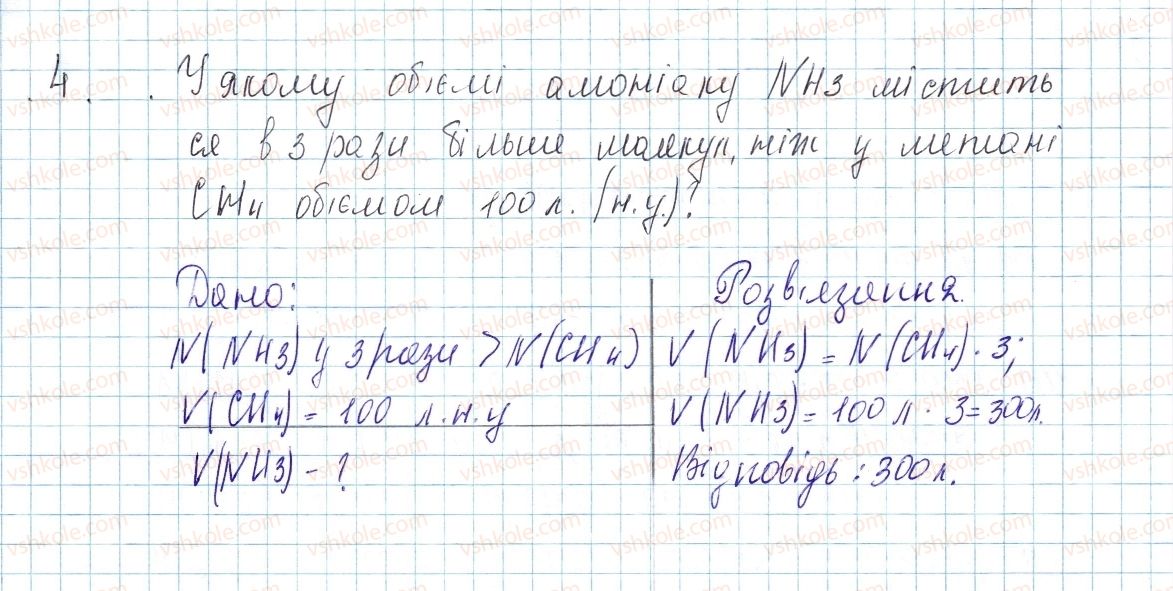 4. У якому об'ємі амоніаку NH3 містить
ся в 3 рази більше молекул, ніж у метані
CH4 об'ємом 100 л. (н.у.)?
Дано:
N(NH3) у 3 рази > N(CH4)
V(CH4) = 100 л.н.у
V(NH3) - ?
Розв'язання.
V(NH3) = N(CH4) · 3;
V(NH3) = 100 л · 3 = 300л.
Відповідь: 300л.